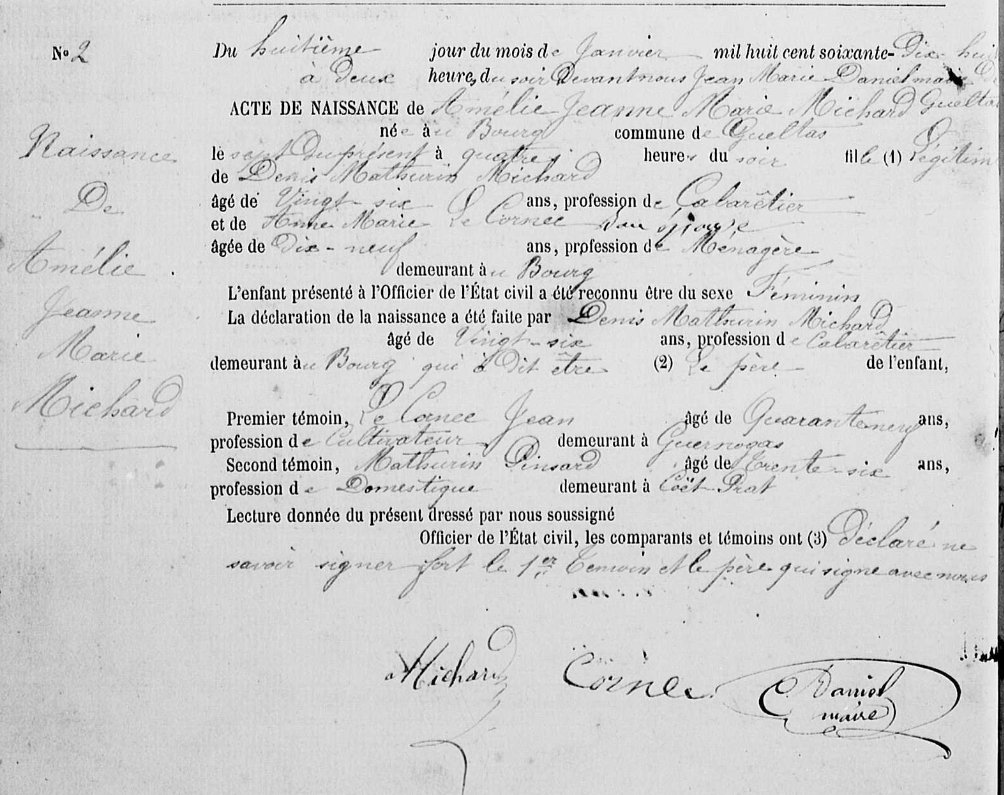 N° 2
Du huitième jour du mois de Janvier mil huit cent soixante-Dix-huit
à Deux heures, du soir Devant nous Jean Marie Daniel maire De
ACTE DE NAISSANCE de Amélie Jeanne Marie Michard Gueltas
née au Bourg commune de Gueltas
le sept Du présent à quatre heures du soir fille (1) Légitime
de Denis Mathurin Michard
âgé de Vingt-six ans, profession de Cabarêtier
et de Anne Marie Le Cornec Son épouse
âgée de Dix-neuf ans, profession de Ménagère
demeurant au Bourg
L'enfant présenté à l'Officier de l'État civil a été reconnu être du sexe Féminin
La déclaration de la naissance a été faite par Denis Mathurin Michard
âgé de Vingt-six ans, profession de Cabarêtier
demeurant au Bourg qui à Dit être (2) Le père de l'enfant,
Premier témoin, Le Cornec Jean âgé de Quarante neuf ans,
profession de Cultivateur demeurant à Guernogas
Second témoin, Mathurin Pinsard âgé de Trente-six ans,
profession de Domestique demeurant à Coët-Prat
Lecture donnée du présent dressé par nous soussigné
Officier de l'État civil, les comparants et témoins ont (3) Déclaré ne
savoir signer fort le 1er Temoin et le père qui signe avec nous
Naissance
De
Amélie
Jeanne
Marie
Michard
Michard Cornec Daniel
maire